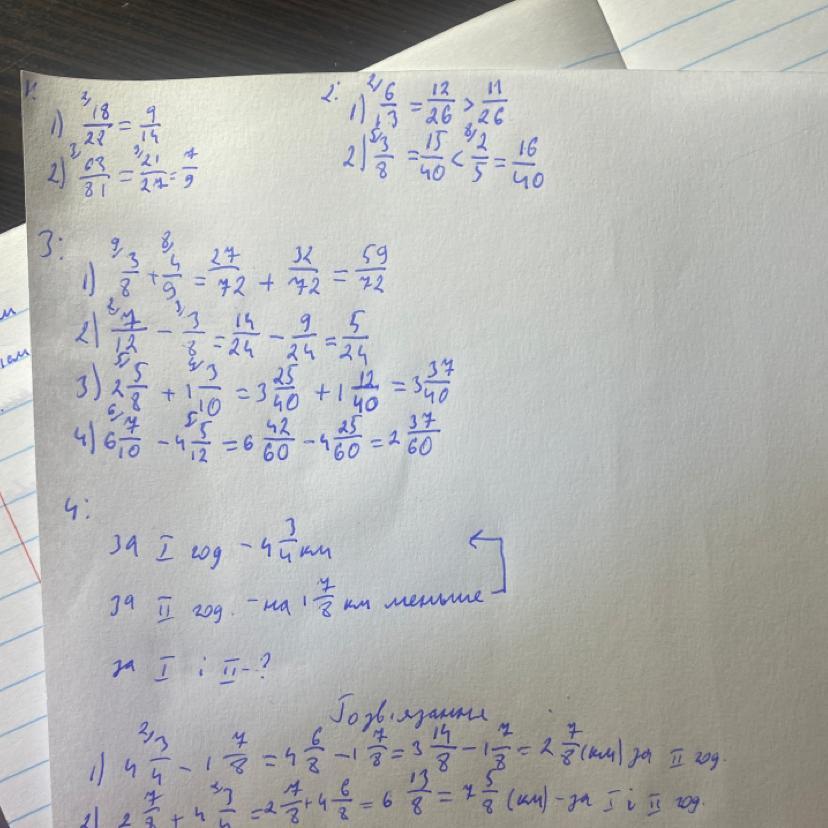 1:
1) ²⁄18/28 = 9/14
2) ³⁄63/81 = ³⁄21/27 = 7/9
2:
1) ²⁄6/13 = 12/26 > 11/26
2) ⁵⁄3/8 = 15/40 < ⁸⁄2/5 = 16/40
3:
1) ⁹⁄3/8 + ⁸⁄4/9 = 27/72 + 32/72 = 59/72
2) ²⁄7/12 - ³⁄3/8 = 14/24 - 9/24 = 5/24
3) 2 ⁵⁄5/8 + 1 ⁴⁄3/10 = 3 25/40 + 1 12/40 = 3 37/40
4) 6 ⁶⁄7/10 - 4 ⁵⁄5/12 = 6 42/60 - 4 25/60 = 2 37/60
4:
за I год - 4 3/4 км
за II год. - на 1 7/8 км меньше
за I і II - ?
Розв'язання
1) 4 ²⁄3/4 - 1 7/8 = 4 6/8 - 1 7/8 = 3 14/8 - 1 7/8 = 2 7/8 (км) за II год.
2) 2 7/8 + 4 ²⁄3/4 = 2 7/8 + 4 6/8 = 6 13/8 = 7 5/8 (км) - за I і II год.